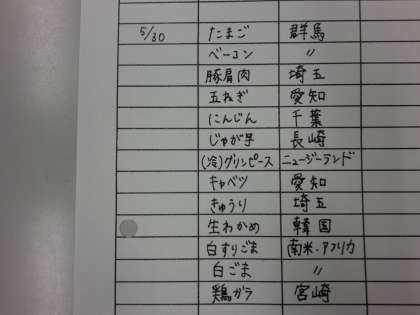 5/30 たまご 群馬
ベーコン 〃
豚肩肉 埼玉
玉ねぎ 愛知
にんじん 千葉
じゃが芋 長崎
(冷)グリンピース ニュージーランド
キャベツ 愛知
きゅうり 埼玉
生わかめ 韓国
白すりごま 南米・アフリカ
白ごま 〃
鶏ガラ 宮崎